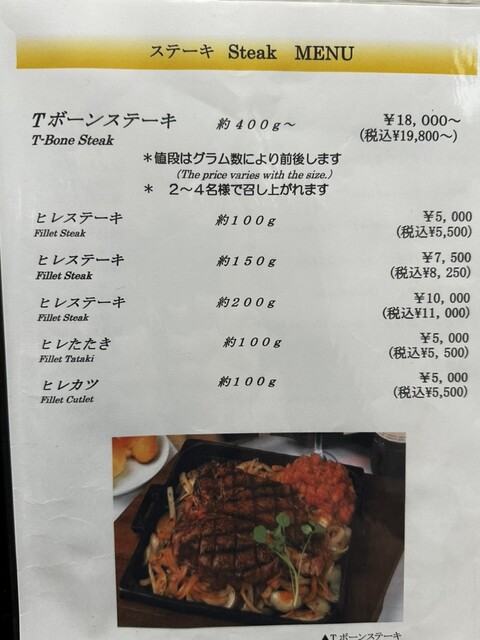 ステーキ Steak MENU
Tボーンステーキ 約400g〜 ¥18,000〜
T-Bone Steak (税込¥19,800〜)
＊値段はグラム数により前後します
(The price varies with the size.)
＊ 2〜4名様で召し上がれます
ヒレステーキ 約100g ¥5,000
Fillet Steak (税込¥5,500)
ヒレステーキ 約150g ¥7,500
Fillet Steak (税込¥8,250)
ヒレステーキ 約200g ¥10,000
Fillet Steak (税込¥11,000)
ヒレたたき 約100g ¥5,000
Fillet Tataki (税込¥5,500)
ヒレカツ 約100g ¥5,000
Fillet Cutlet (税込¥5,500)
▲Tボーンステーキ